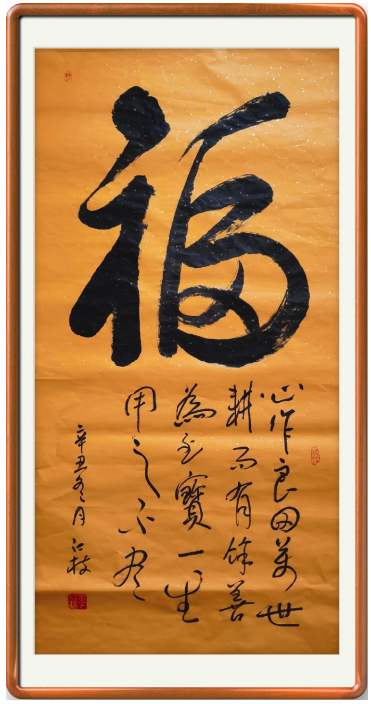 福
心作良田萬世
耕而有餘善
為至寶一生
用之不盡
辛丑冬月